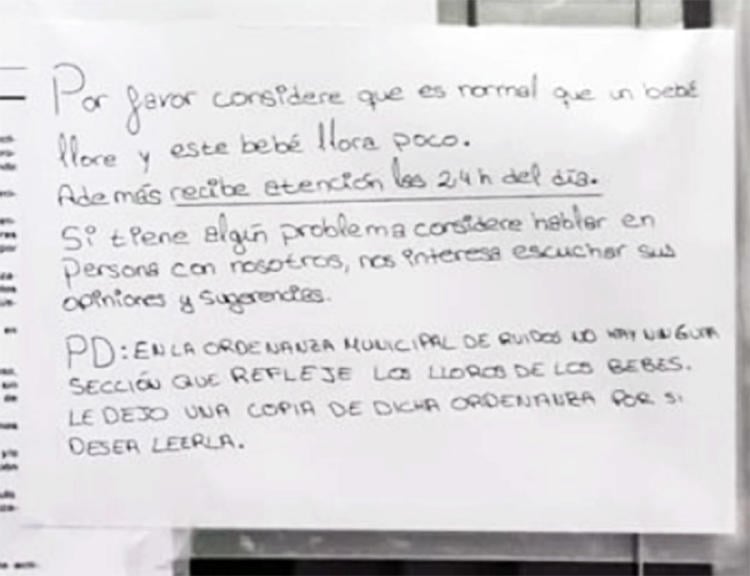 Por favor considere que es normal que un bebé
llore y este bebé llora poco.
Además recibe atención las 24h del día.
Si tiene algún problema considere hablar en
persona con nosotros, nos interesa escuchar sus
opiniones y sugerencias.
PD: EN LA ORDENANZA MUNICIPAL DE RUIDOS NO HAY NINGUNA
SECCIÓN QUE REFLEJE LOS LLOROS DE LOS BEBES.
LE DEJO UNA COPIA DE DICHA ORDENANZA POR SI
DESEA LEERLA.